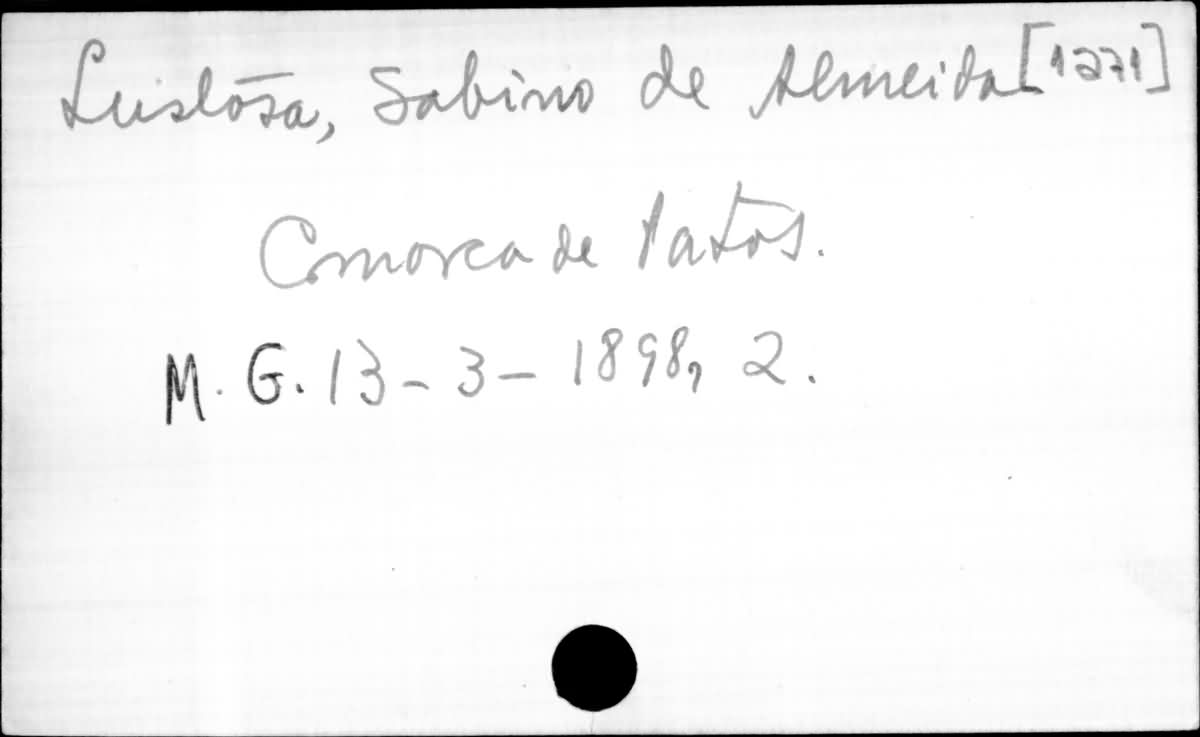 Lustósa, Sabino de Almeida [1271]
Comarca de Patos.
M. G. 13-3-1898, 2.